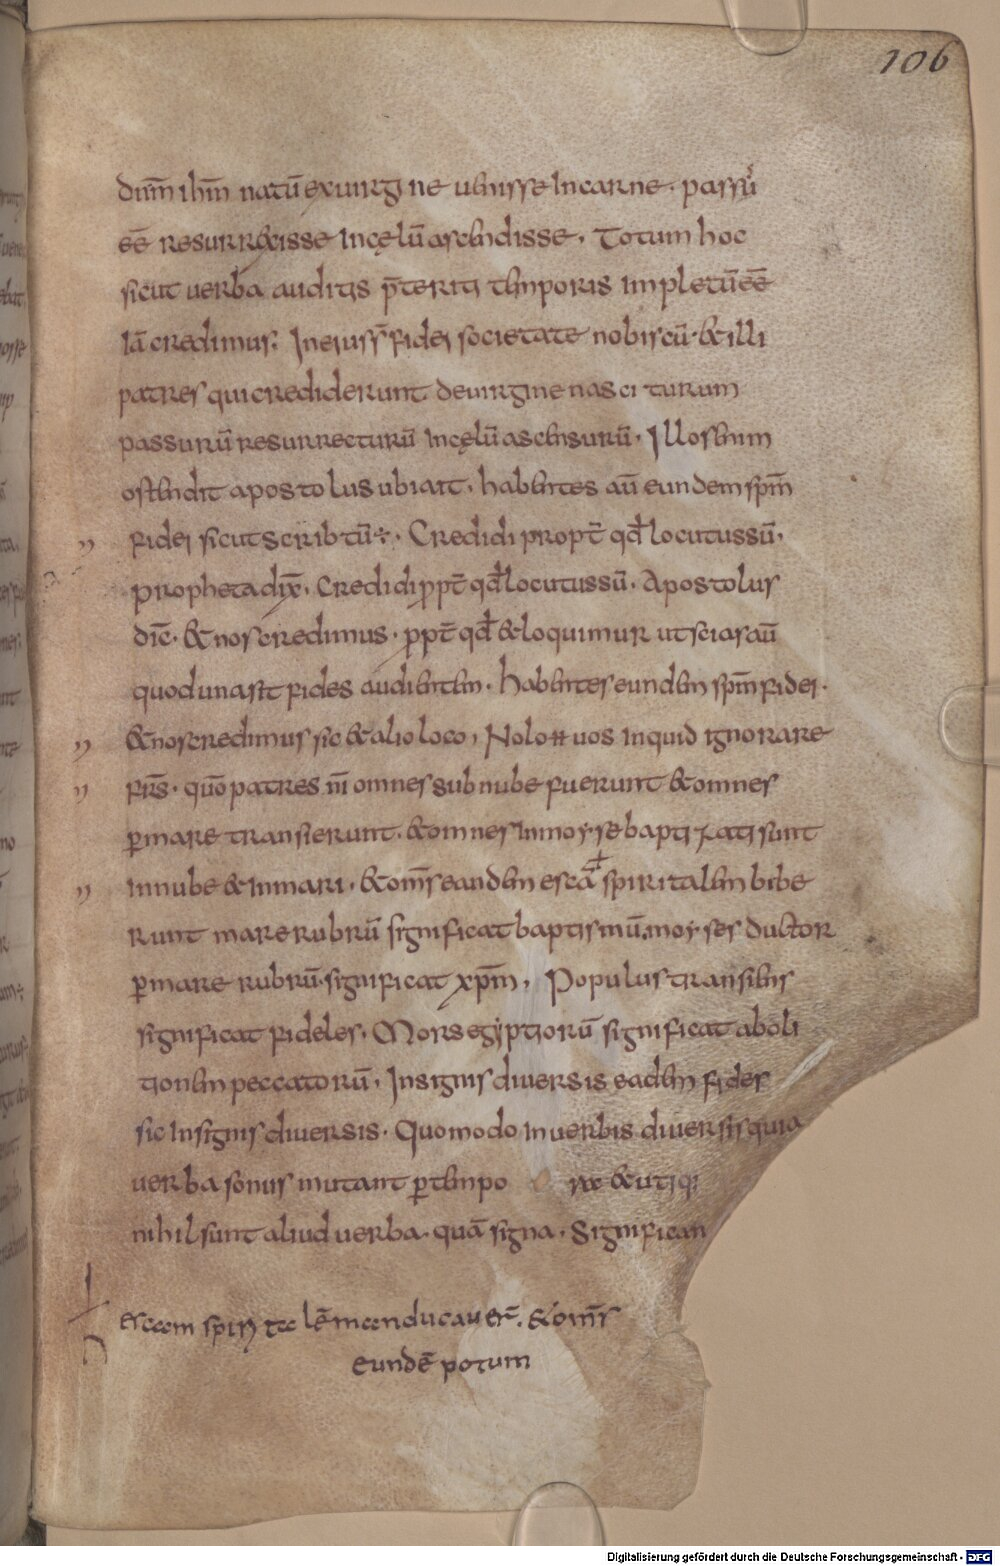 106
dnm̄ ihm̄ natū exuirgine uenisse incarne. passū
eē̄ resurrexisse incęlū ascendisse. Totum hoc
sicut uerba auditis p̄teriti temporis impletū eē̄
iā credimus. Ineiuss̄ fidei societate nobiscū. &illi
patres quicrediderunt deuirgine nasciturum
passurū resurrecturū incęlū ascensurū. Illos enim
ostendit apostolus ubiait. habentes aū eundem spm̄
fidei sicut scribtū ÷. Credidi propt̄ qd̄ locutussū.
propheta dix̄. Credidi ppt̄ qd̄ locutussū. Apostolus
dic̄. &noscredimus. ppt̄ qd̄ &loquimur utsciasaū
quod unast fides audi entem. habentes eundem spm̄ fidei.
&noscredimus sic &alio loco. Nolo uos inquid ignorare
frs̄. qūo patres nī omnes subnube fuerunt &omnes
p̄mare transierunt. &omnes inmoyse baptizati sunt
innube &inmari. &oms̄ eandem escā spiritalem bibe
runt mare rubrū significat baptismū. moyses ductor
p̄mare rubrū significat xpm̄. Populus transiens
significat fideles. Mors egyptiorū significat aboli
tionem peccatorū. Insignis diuersis eadem fides
sic insignis diuersis. Quomodo inuerbis diuersis quia
uerba sonus mutant p̄tempo ra &utiq;
nihil sunt aliud uerba. quā signa. Significan
escam spiritalē manducauer̄. &oms̄
eundē potum
Digitalisierung gefördert durch die Deutsche Forschungsgemeinschaft - DFG